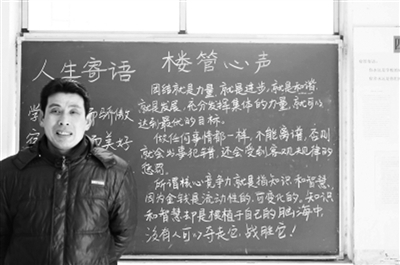 人生寄语
学 而骄傲
而美好
楼管心声
团结就是力量,就是进步,就是和谐,
就是发展,充分发挥集体的力量,就可以
达到最优化的目标。
做任何事情都一样,不能离谱,否则
就会出 犯错,还会受到客观规律的
惩罚。
所谓核心竞争力就是指知识和智慧,
因为金钱是流动性的,可变化的。知识
和智慧却是根植于自己的脑海中,
没有人可以夺走它,战胜它!